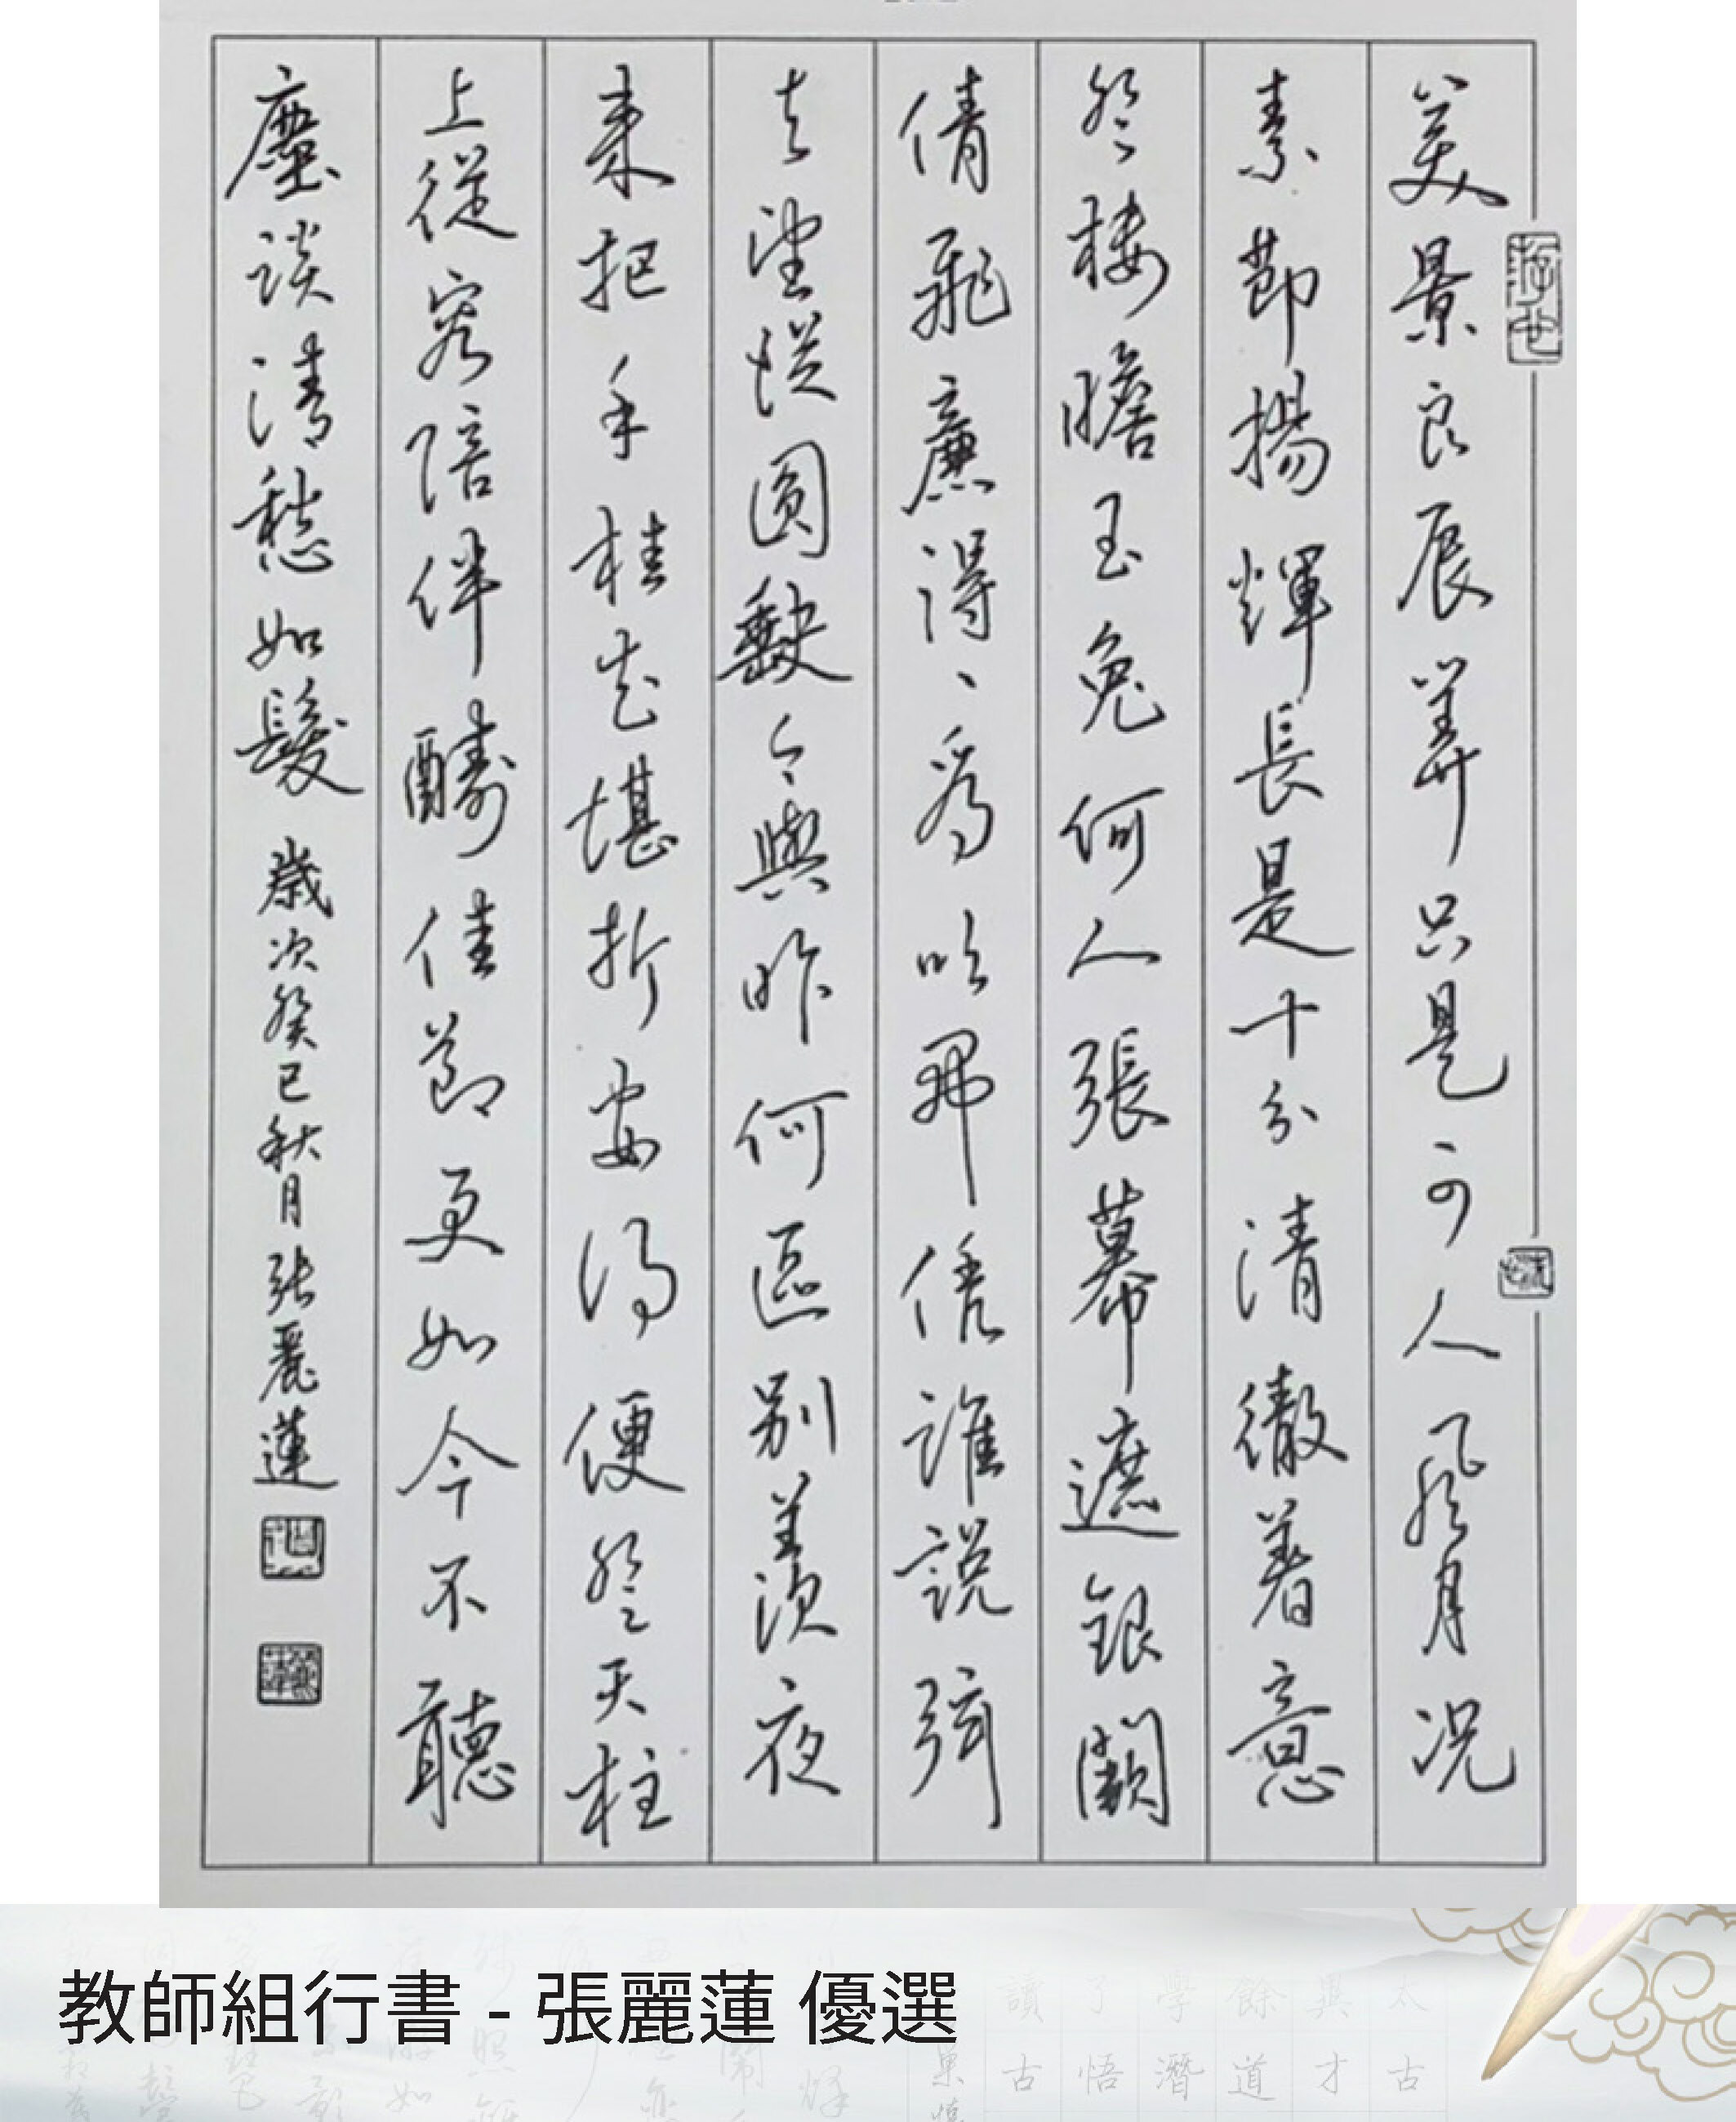 美景良辰算只是可人風月況
素節揚輝長是十分清徹着意
登樓瞻玉兔何人張幕遮銀闕
倩飛廉得、為吹開憑誰說弦
与望從圓缺今與昨何區別羨夜
來把手桂花堪折安得便登天柱
上從容陪伴酬佳節更如今不聽
塵談清愁如髮 歲次癸巳秋月張麗蓮
教師組行書 - 張麗蓮 優選